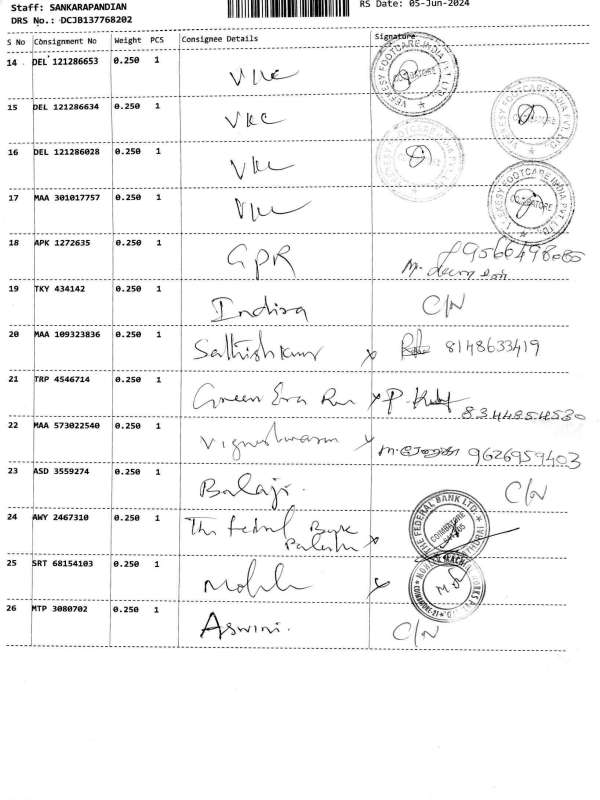 Staff: SANKARAPANDIAN
RS Date: 05-Jun-2024
DRS No.: DCJB137768202
S No Consignment No Weight PCS Consignee Details Signature
14 DEL 121286653 0.250 1 VKC
15 DEL 121286634 0.250 1 VKC
16 DEL 121286028 0.250 1 VKC
17 MAA 301017757 0.250 1 VKC
18 APK 1272635 0.250 1 GPR 9566498085
19 TKY 434142 0.250 1 Indira C/N
20 MAA 109323836 0.250 1 Sathish Kumar x 8148633419
21 TRP 4546714 0.250 1 Green Era x P. 8344854530
22 MAA 573022540 0.250 1 Vigneshwaran x 9626959403
23 ASD 3559274 0.250 1 Balaji. C/N
24 AWY 2467310 0.250 1 The Federal Bank x THE FEDERAL BANK LTD. COIMBATORE
25 SRT 68154103 0.250 1 x
26 MTP 3080702 0.250 1 Aswini. C/N